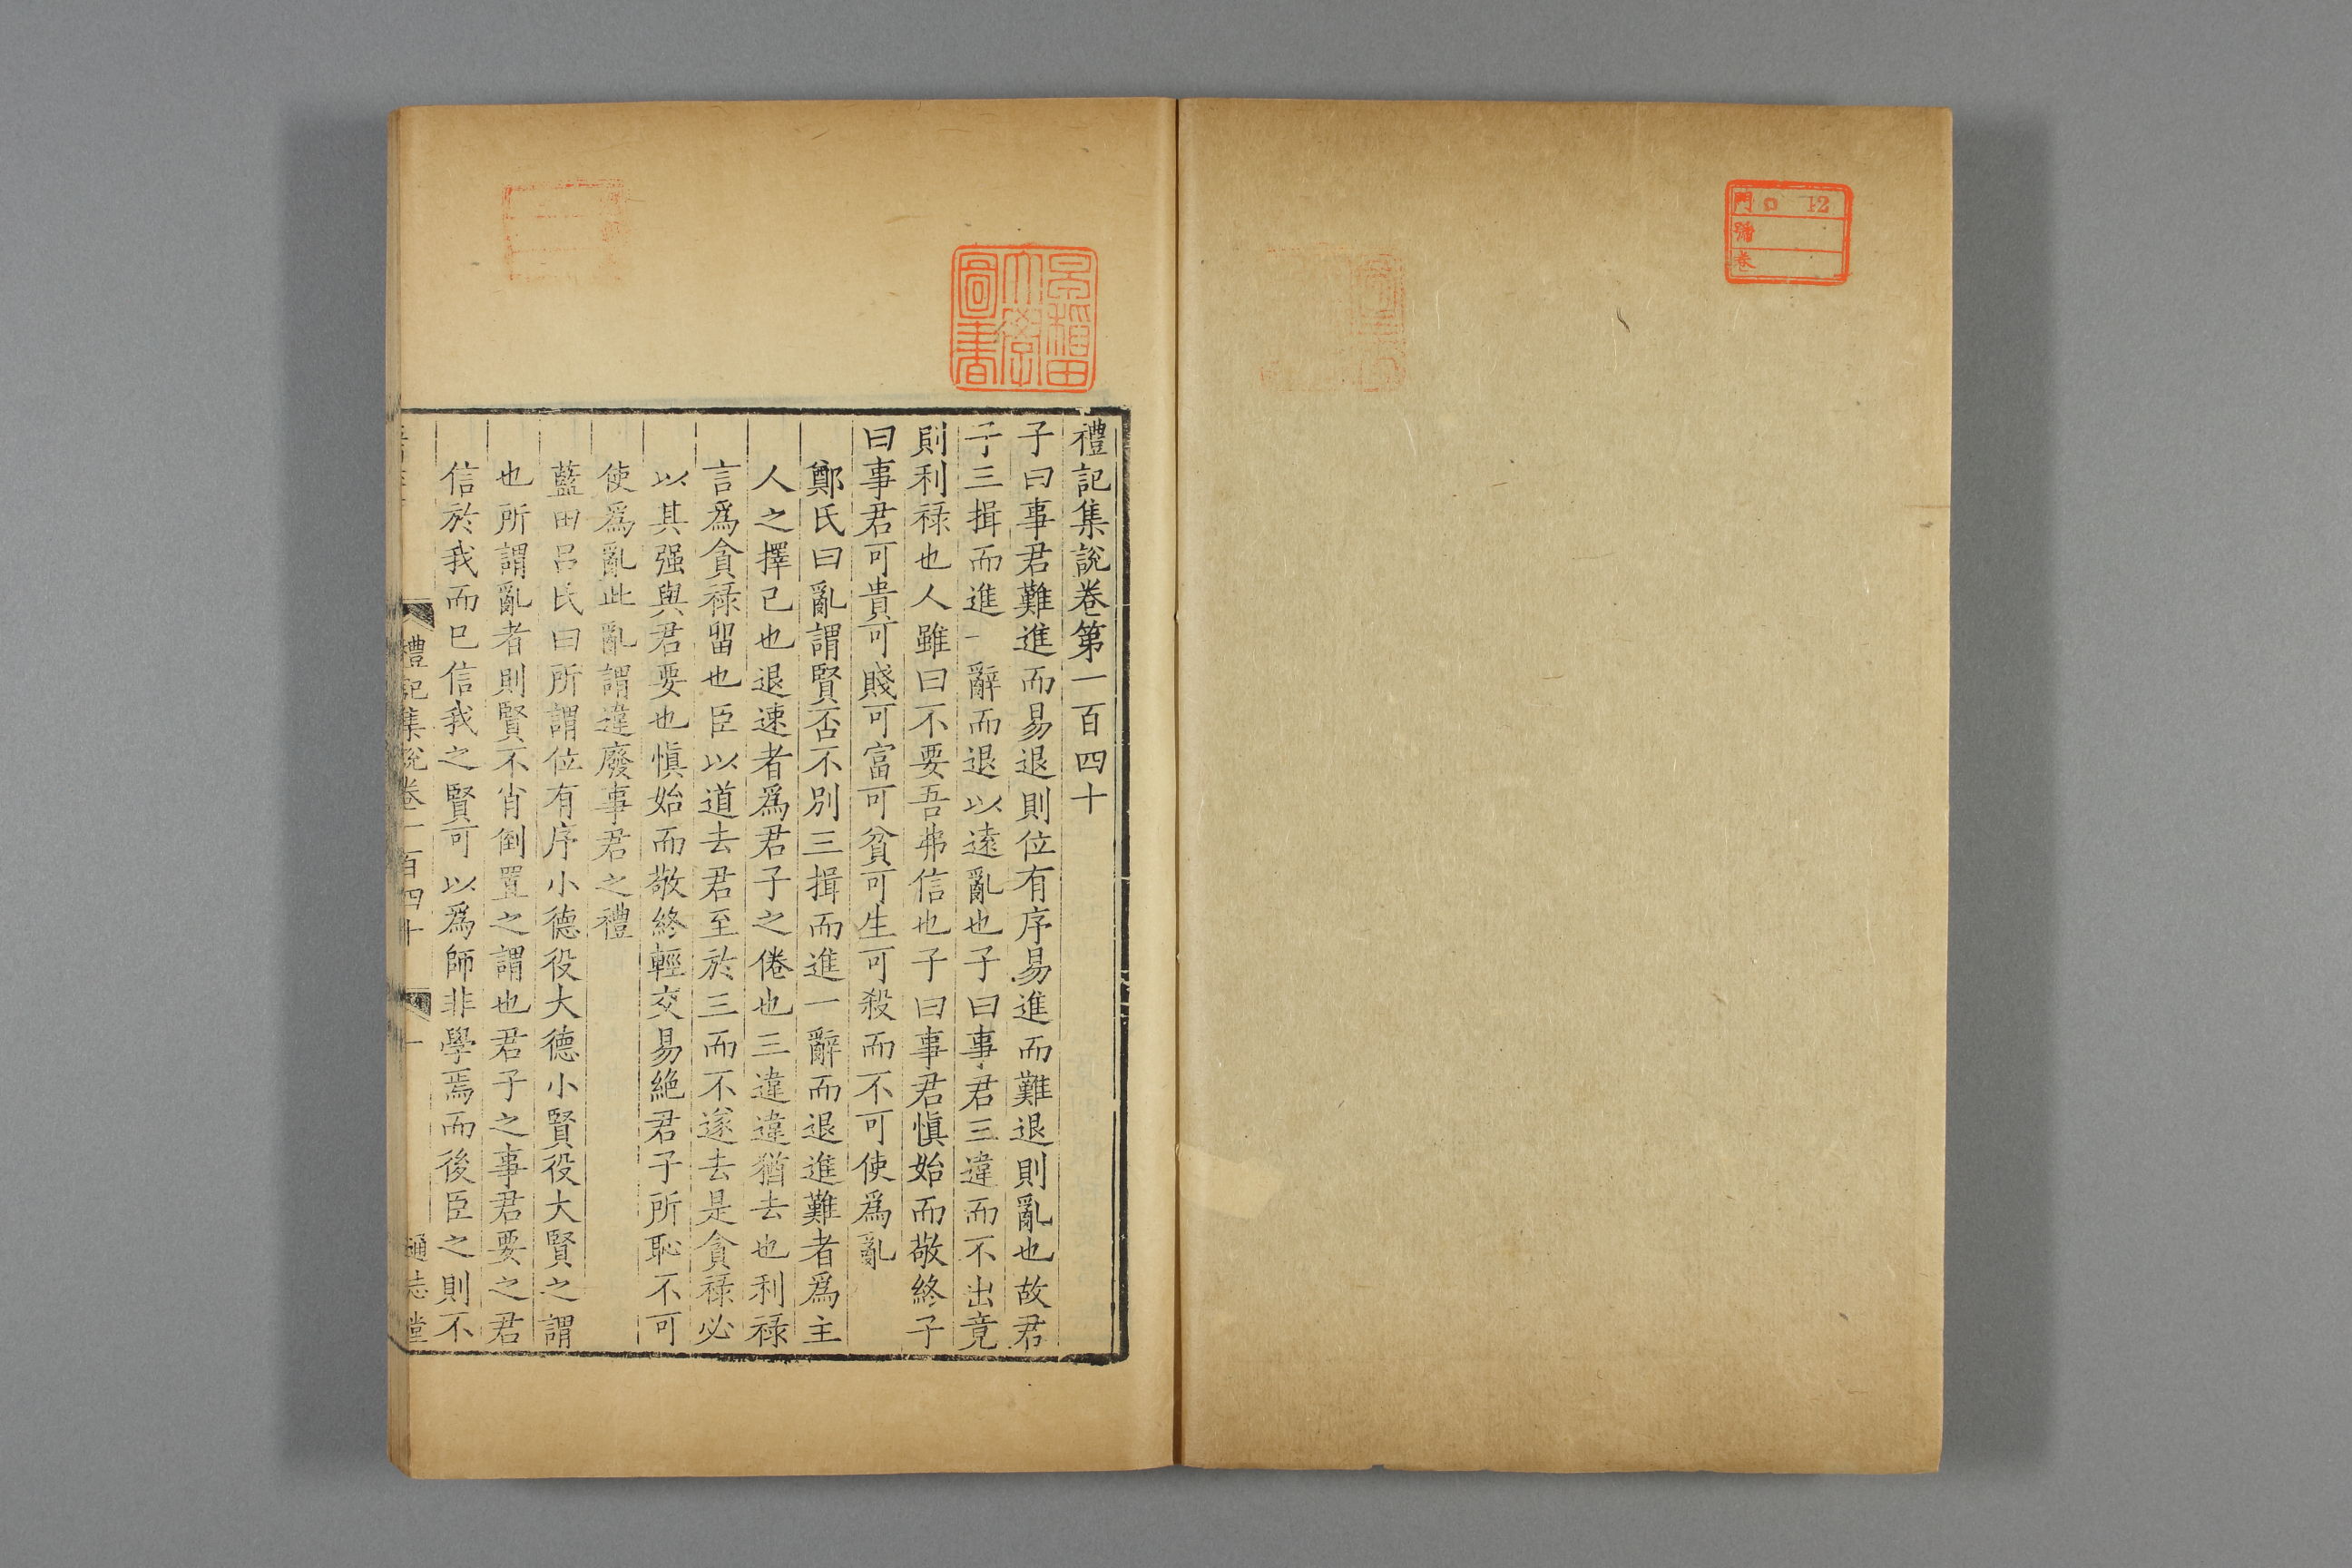 門 ロ 12
號
卷
早稲田
大學
圖書
禮記集說卷第一百四十
子曰事君難進而易退則位有序易進而難退則亂也故君
子三揖而進一辭而退以遠亂也子曰事君三違而不出竟
則利祿也人雖曰不要吾弗信也子曰事君愼始而敬終子
曰事君可貴可賤可富可貧可生可殺而不可使爲亂
鄭氏曰亂謂賢否不別三揖而進一辭而退進難者爲主
人之擇己也退速者爲君子之倦也三違違猶去也利祿
言爲貪祿留也臣以道去君至於三而不遂去是貪祿必
以其强與君要也愼始而敬終輕交易絶君子所恥不可
使爲亂此亂謂違廢事君之禮
藍田呂氏曰所謂位有序小德役大德小賢役大賢之謂
也所謂亂者則賢不肖倒置之謂也君子之事君要之君
信於我而已信我之賢可以爲師非學焉而後臣之則不
禮記集說卷一百四十 一 通志堂